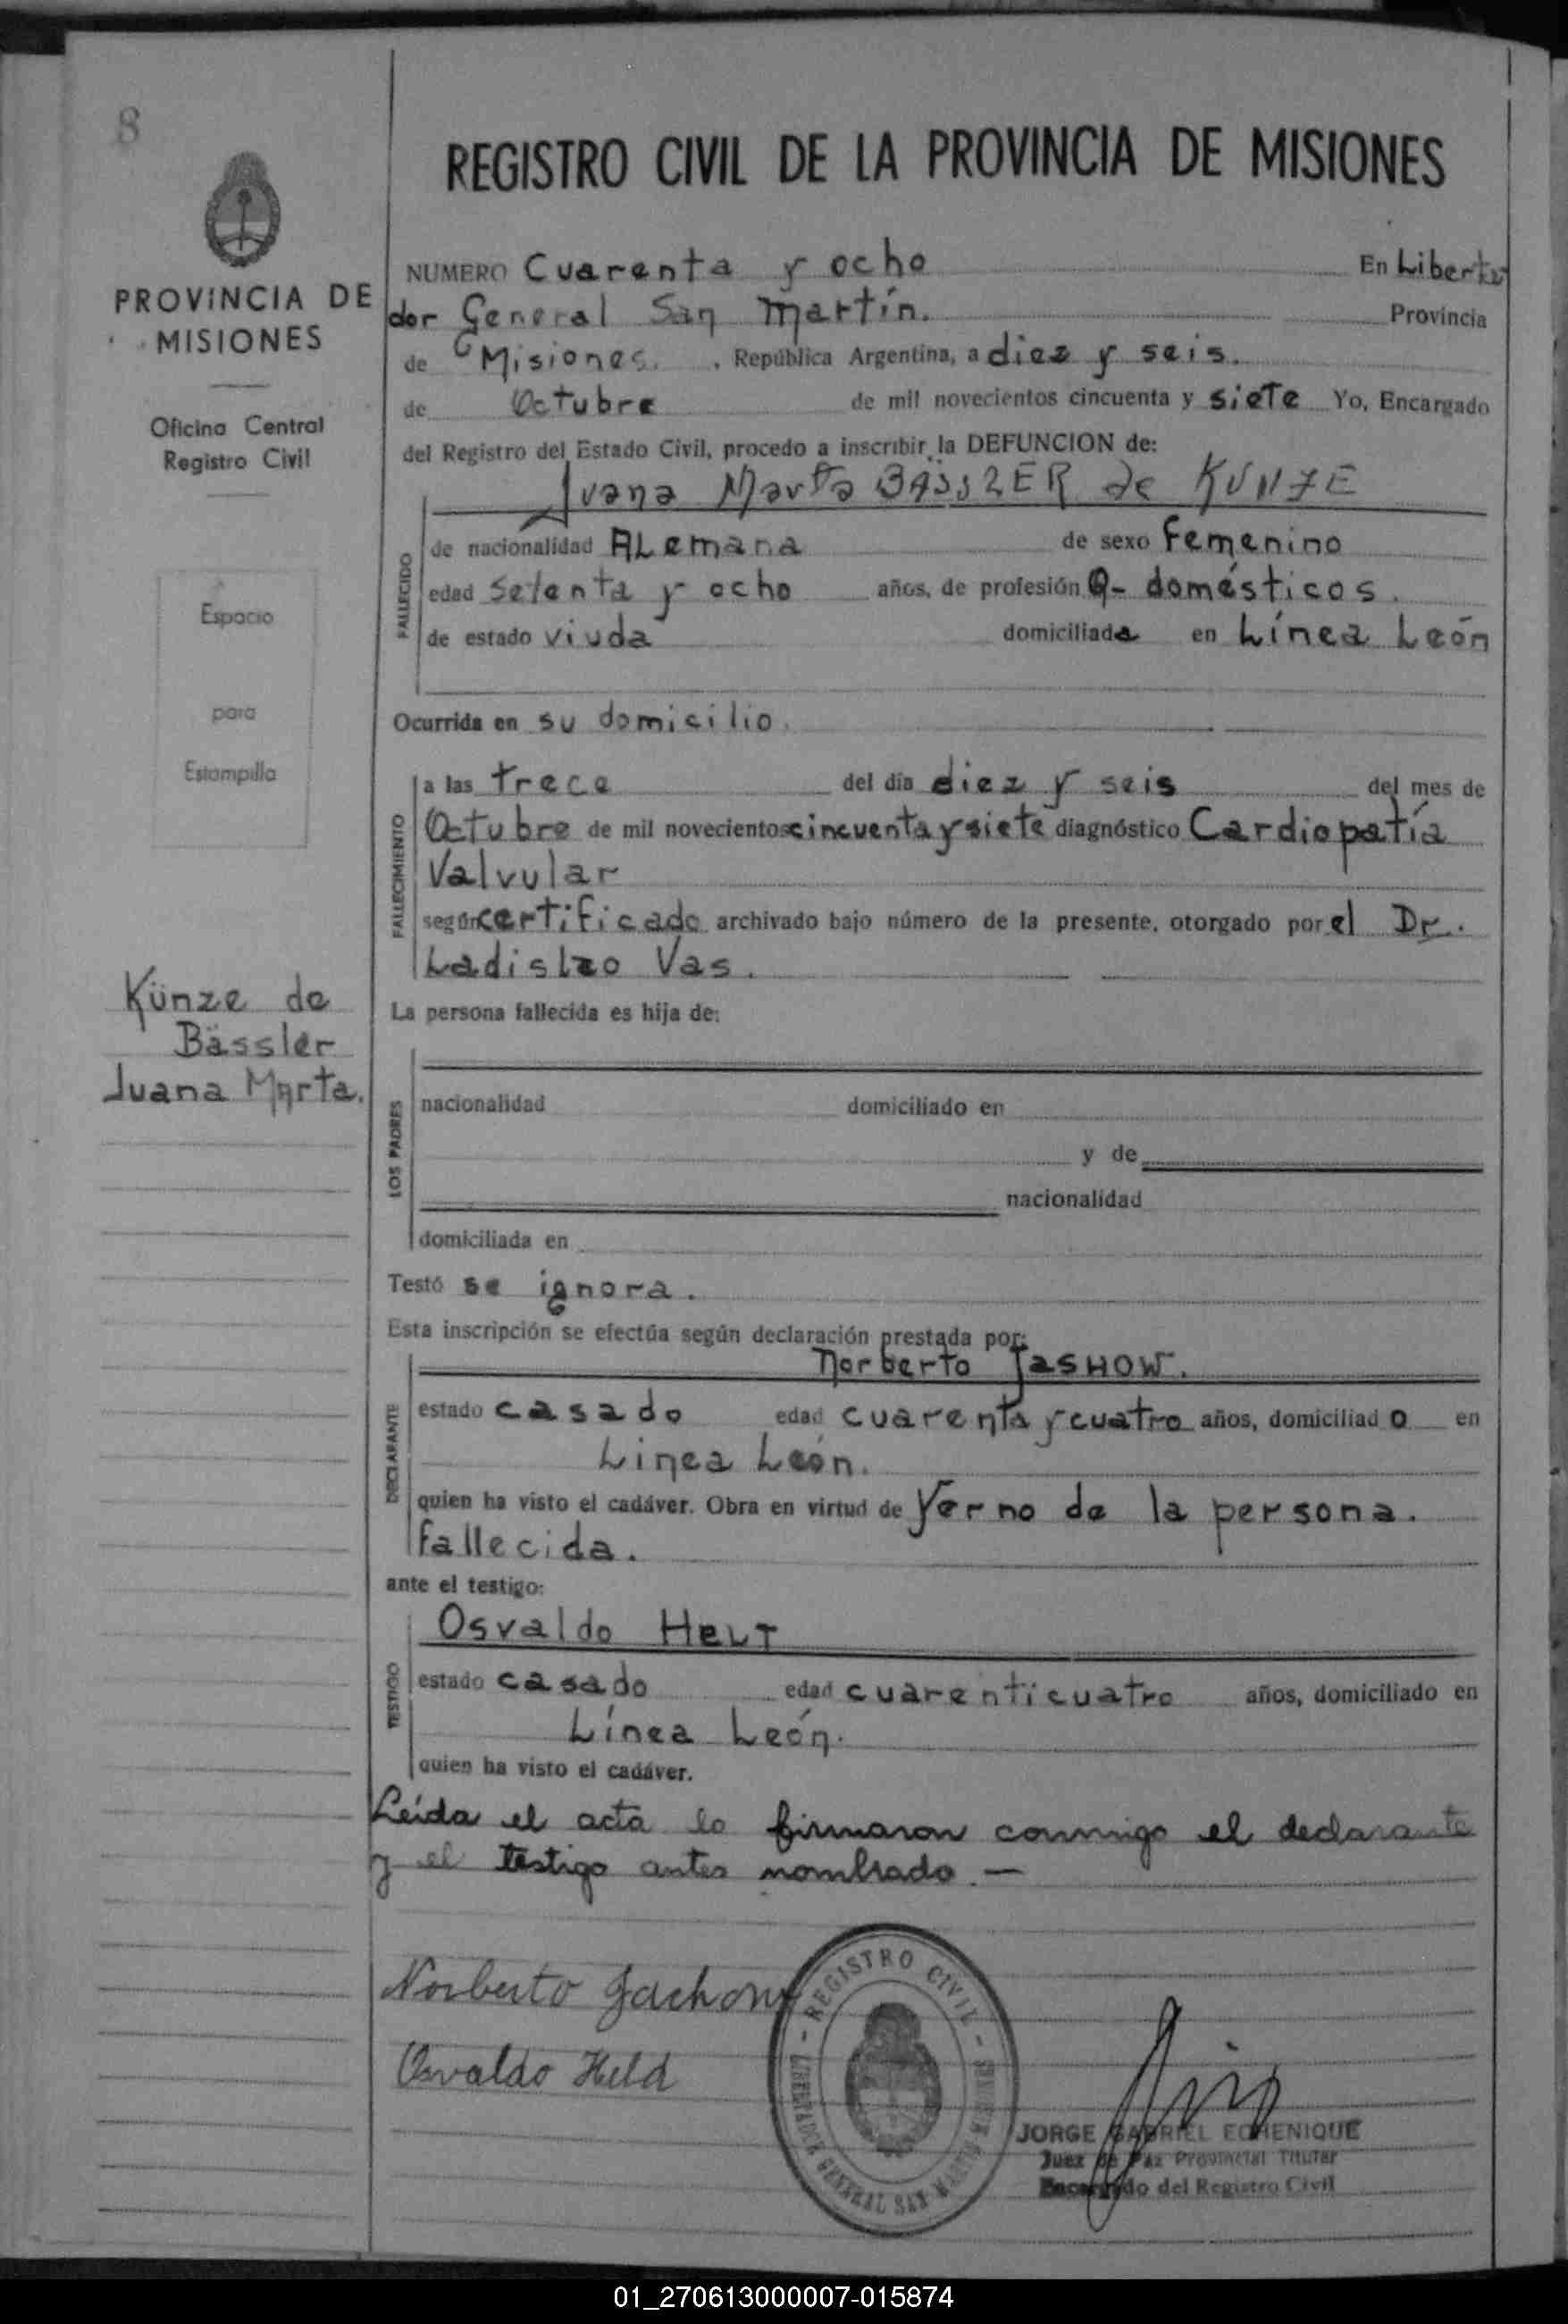 8
REGISTRO CIVIL DE LA PROVINCIA DE MISIONES
PROVINCIA DE
MISIONES
Oficina Central
Registro Civil
Espacio
para
Estampilla
Künze de
Bässler
Juana Marta.
NUMERO Cuarenta y ocho En Liberta
dor General San Martín. Provincia
de Misiones. , República Argentina, a diez y seis.
de Octubre de mil novecientos cincuenta y siete Yo, Encargado
del Registro del Estado Civil, procedo a inscribir la DEFUNCION de:
Juana Marta BÄSSLER de KÜNZE
FALLECIDO
de nacionalidad ALemana de sexo Femenino
edad Setenta y ocho años, de profesión Q- domésticos.
de estado viuda domiciliada en Línea León
Ocurrida en su domicilio.
FALLECIMIENTO
a las trece del día diez y seis del mes de
Octubre de mil novecientos cincuenta y siete diagnóstico Cardiopatía
Valvular
según certificado archivado bajo número de la presente, otorgado por el Dr.
Ladislao Vas.
La persona fallecida es hija de:
LOS PADRES
nacionalidad domiciliado en
y de
nacionalidad
domiciliada en
Testó se ignora.
Esta inscripción se efectúa según declaración prestada por:
Norberto JasHOW.
DECLARANTE
estado casado edad cuarenta y cuatro años, domiciliado en
Linea León.
quien ha visto el cadáver. Obra en virtud de Yerno de la persona.
fallecida.
ante el testigo:
Osvaldo HeLT
TESTIGO
estado casado edad cuarenticuatro años, domiciliado en
Línea León.
quien ha visto el cadáver.
Leída el acta la firmaron conmigo el declarante
y el testigo antes nombrado.—
Norberto Jachow
Osvaldo Held
- REGISTRO CIVIL -
LIBERTADOR GENERAL SAN MARTIN
JORGE GABRIEL ECHENIQUE
Juez de Paz Provincial Titular
Encargado del Registro Civil
01_270613000007-015874